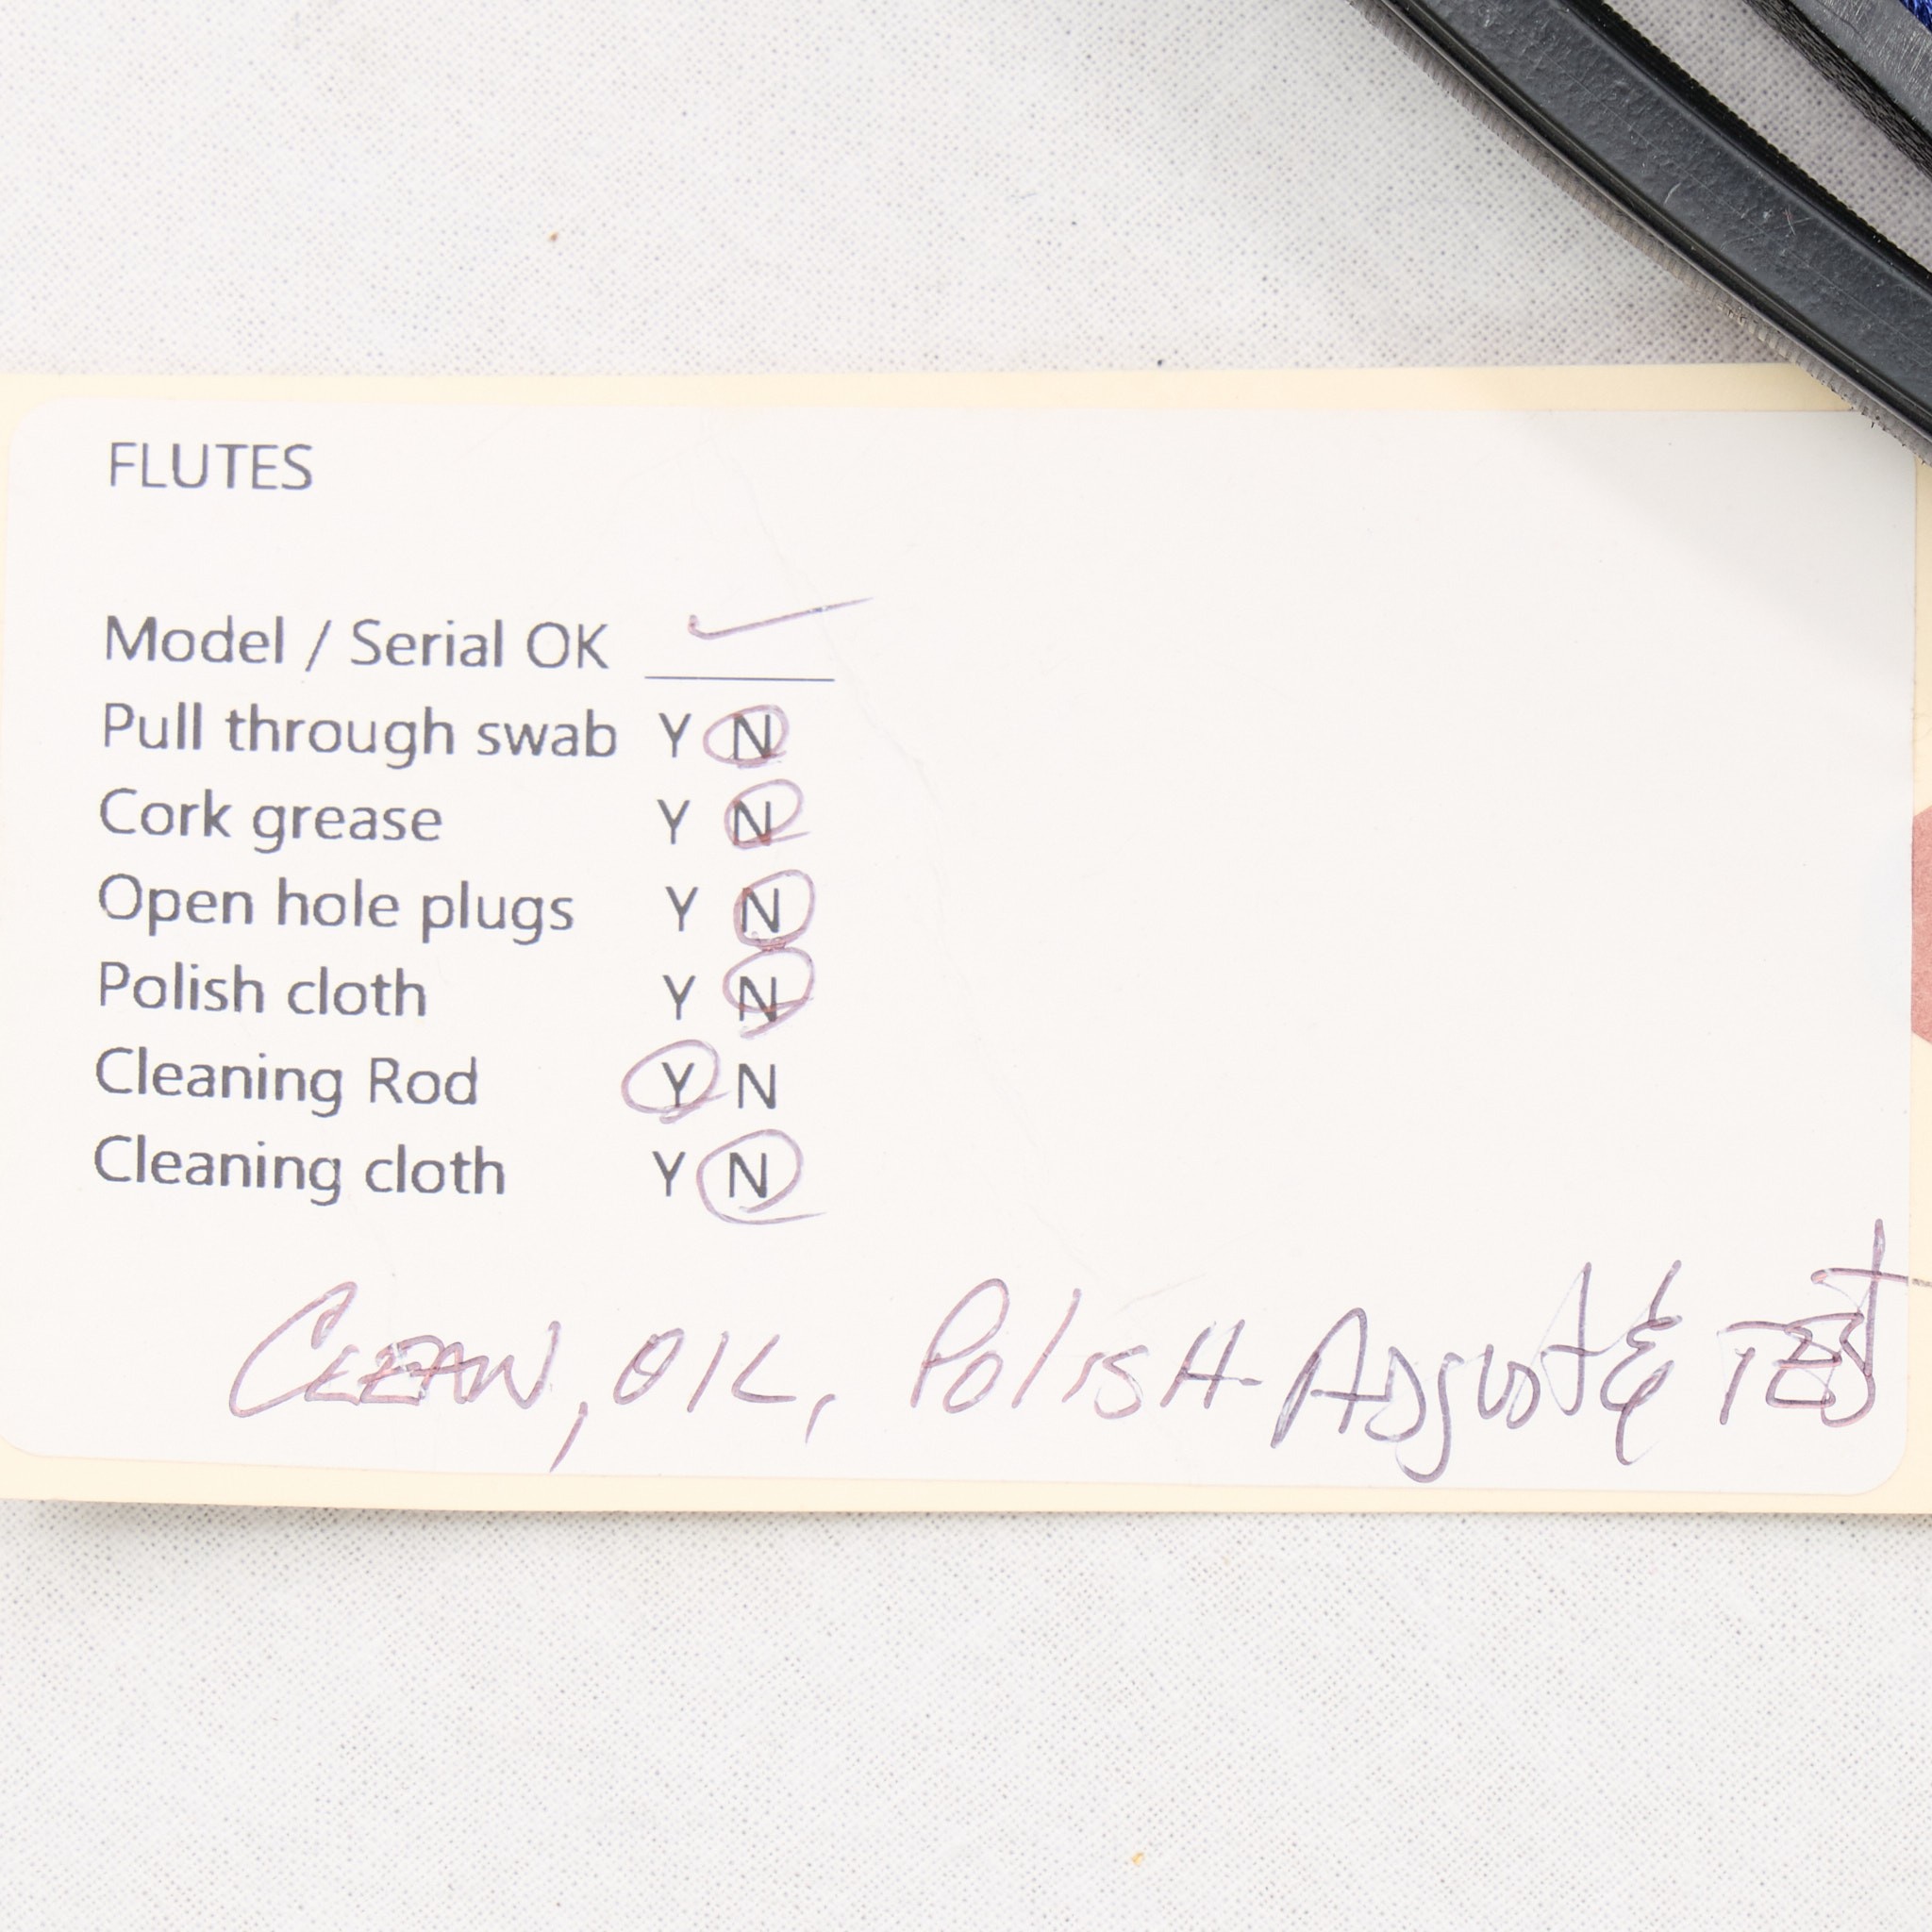 FLUTES
Model / Serial OK ✓
Pull through swab Y N
Cork grease Y N
Open hole plugs Y N
Polish cloth Y N
Cleaning Rod Y N
Cleaning cloth Y N
CLEAN, OIL, PolisH- ADJUST & TEST